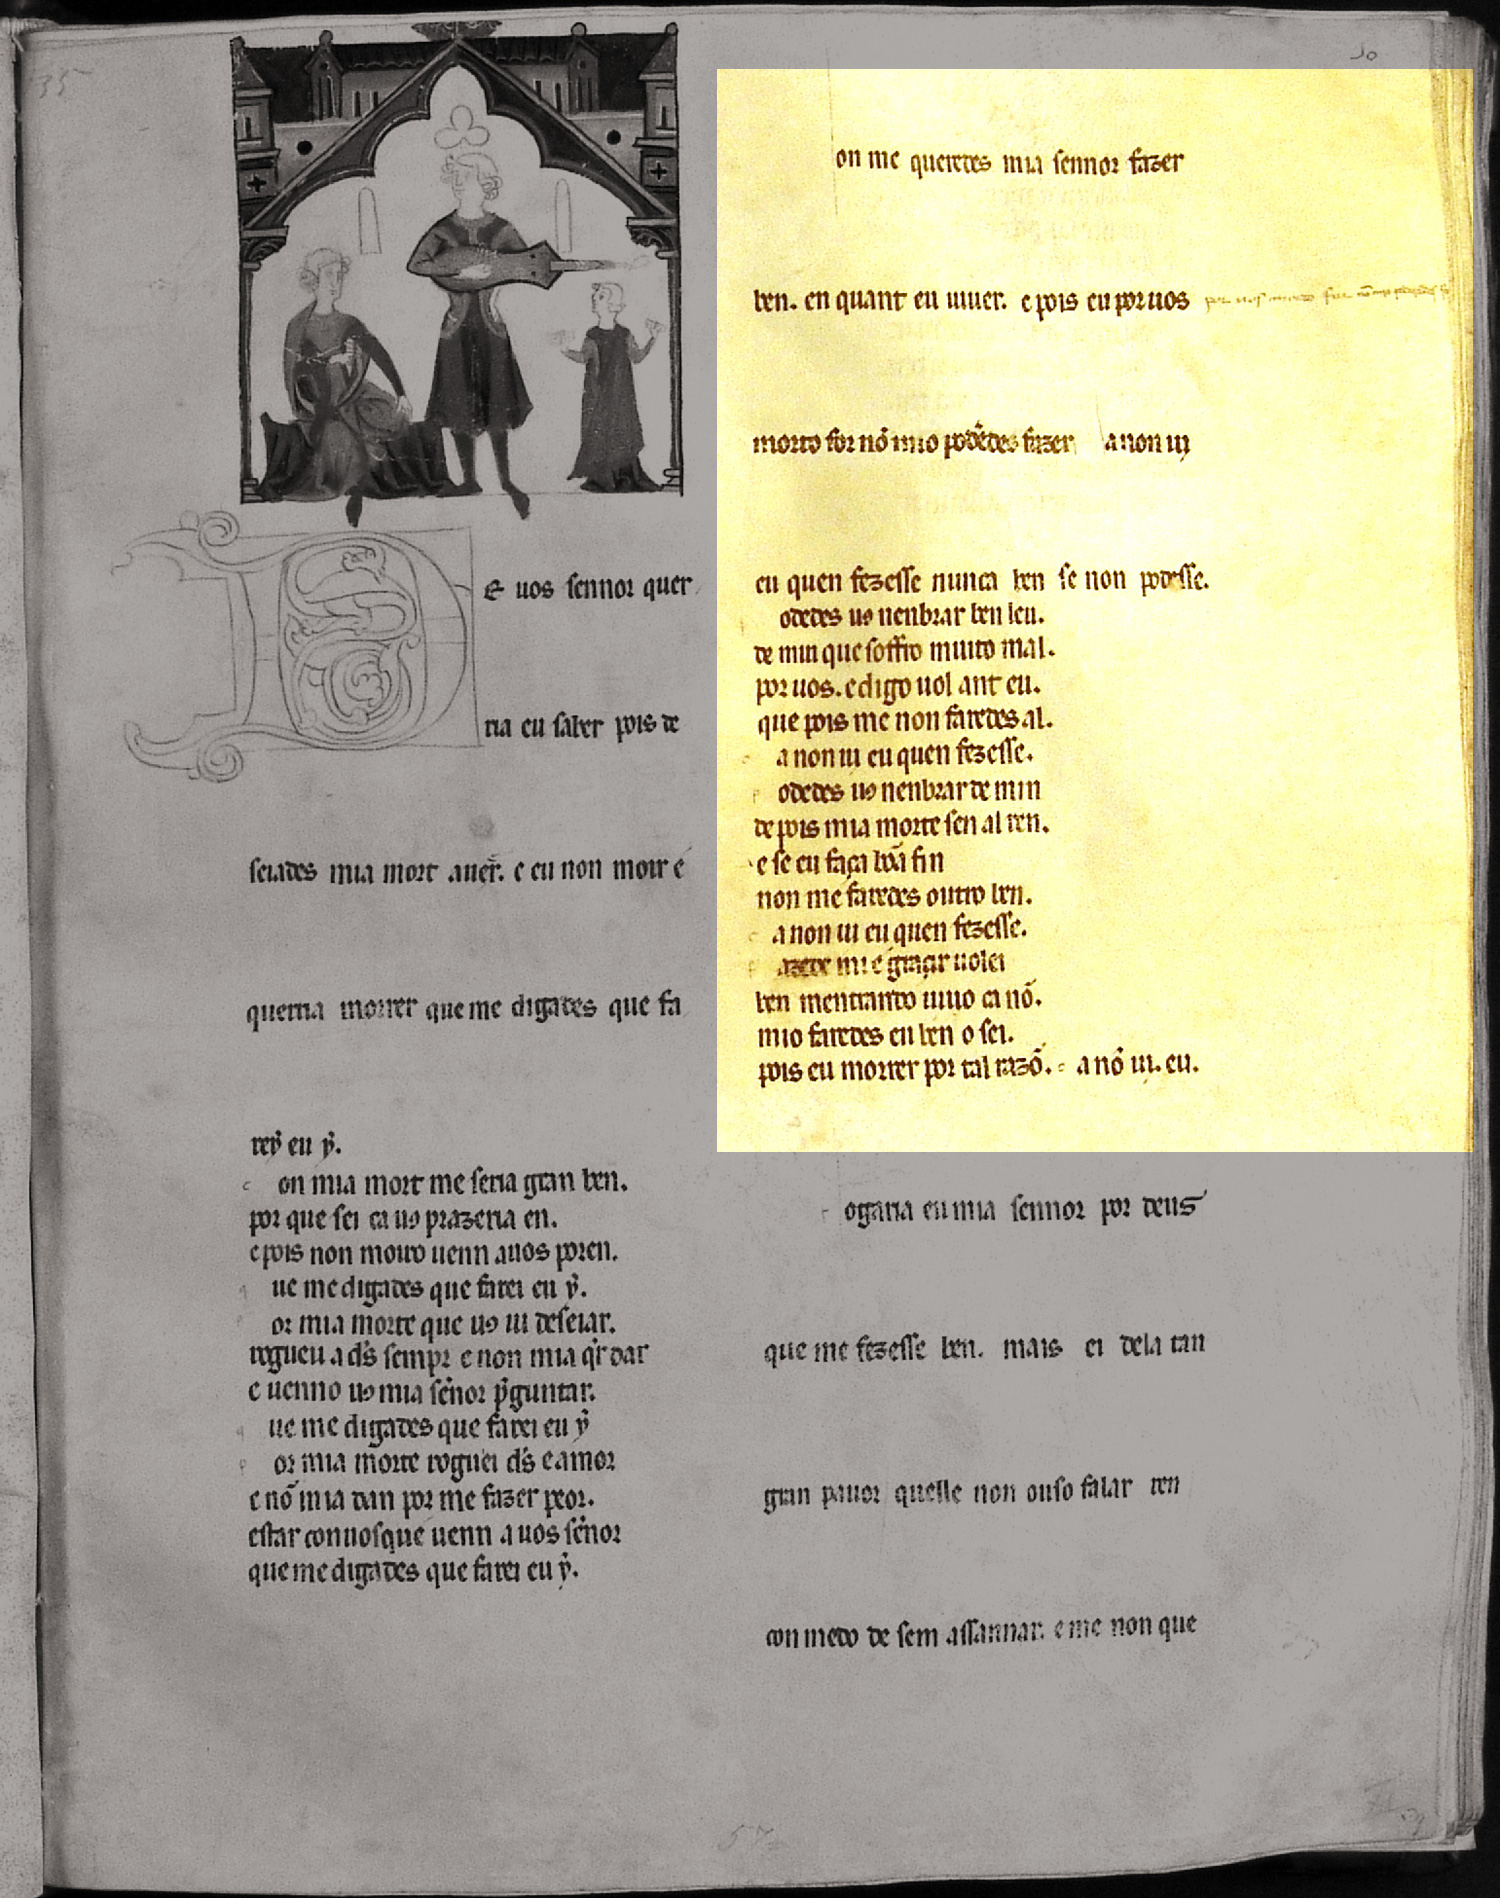 35
E uos sennor quer
ria eu saber pois de
seiades mia mort auer. e eu non moir e
querria morrer que me digades que fa
rey eu ẏ.
on mia mort me seria gran ben.
por que sei ca uꝰ prazeria en.
e pois non mouro uenn auos poren.
ue me digades que farei eu ẏ.
or mia morte que uꝰ ui deseiar.
rogueu a ds̃ sempr e non mia qr̃ dar
e uenno uꝰ mia sen̄or p̃guntar.
ue me digades que farei eu ẏ
or mia morte roguei ds̃ e amor
e nõ mia dan por me fazer peor.
estar conuosque uenn a uos sen̄or
que me digades que farei eu ẏ.
on me queredes mia sennor fazer
ben. en quant eu uiuer. e pois eu por uos
por uos morto for
morto for nõ mio podedes fazer a non ui
eu quen fezesse nunca ben se non podesse.
odedes uꝰ nenbrar ben leu.
de min que soffro muito mal.
por uos. e digo uol ant eu.
que pois me non faredes al.
a non ui eu quen fezesse.
odedes uꝰ nenbrar de min
de pois mia morte sen al ren.
e se eu faça bõa fin
non me faredes outro ben.
a non ui eu quen fezesse.
mi e graçir uolei
ben mentr ando uiuo ca nõ.
mio faredes en ben o sei.
pois eu morrer por tal razõ. a nõ ui. eu.
ogaria eu mia sennor por deus
que me fezesse ben. mais ei dela tan
gran pauor quelle non ouso falar ren
con medo de sem assannar. e me non que
57